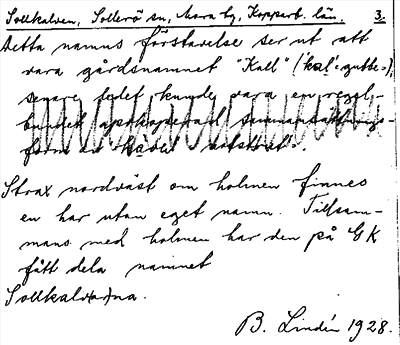 Sollkalven, Sollerö sn, Mora tg, Kopparb. län. 3.
Detta namns förstavelse ser ut att
vara gårdsnamnet "Kall" (kal':gubbe-),
senare ledet kunde vara en regel-
bundet
form av
Strax nordväst om holmen finnes
en har utan eget namn. Tillsam-
mans med holmen har den på GK
fått dela namnet
Sollkalv(ar)na.
B. Lindén 1928.